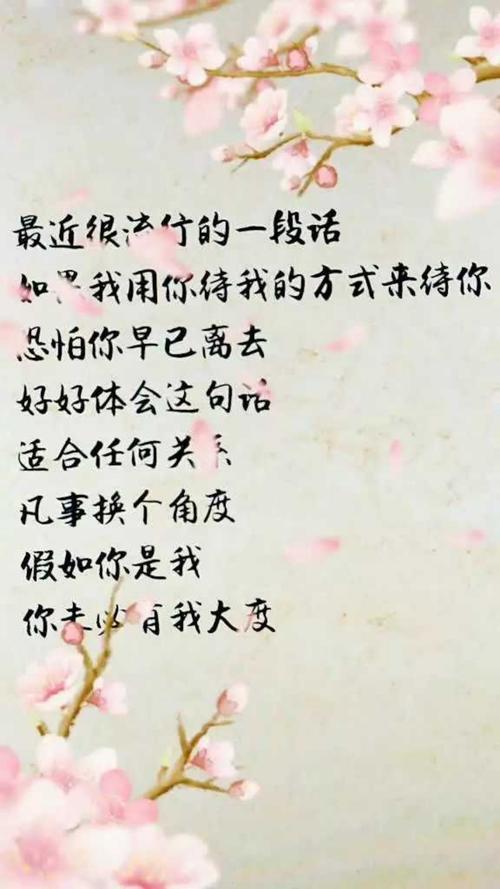 最近很流行的一段话
如果我用你待我的方式来待你
恐怕你早已离去
好好体会这句话
适合任何关系
凡事换个角度
假如你是我
你未必有我大度